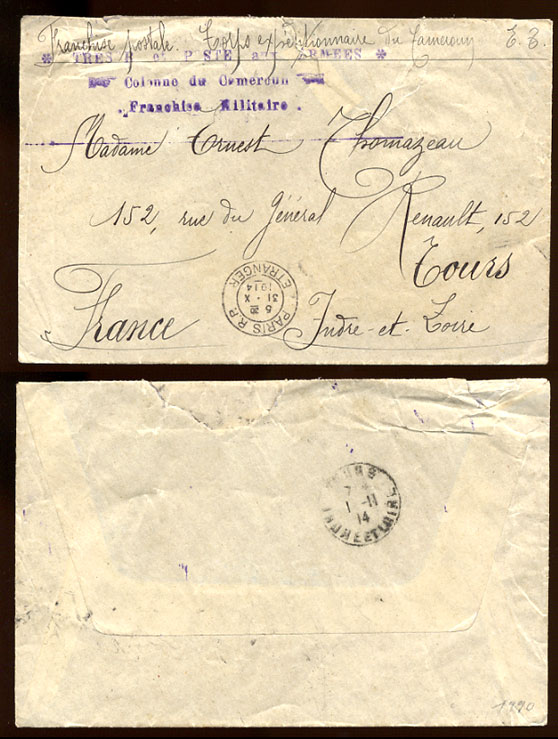 Franchise postale. Corps expéditionnaire du Cameroun E. E.
* TRESOR et POSTE aux ARMEES *
Colonne du Cameroun
Franchise Militaire.
Madame Ernest Thomazeau
152, rue du Général Renault, 152
Tours
France
Indre-et-Loire
PARIS R.P.
6 20
31 - X
1914
ETRANGER
TOURS
7
1 - 11
14
INDRE ET LOIRE